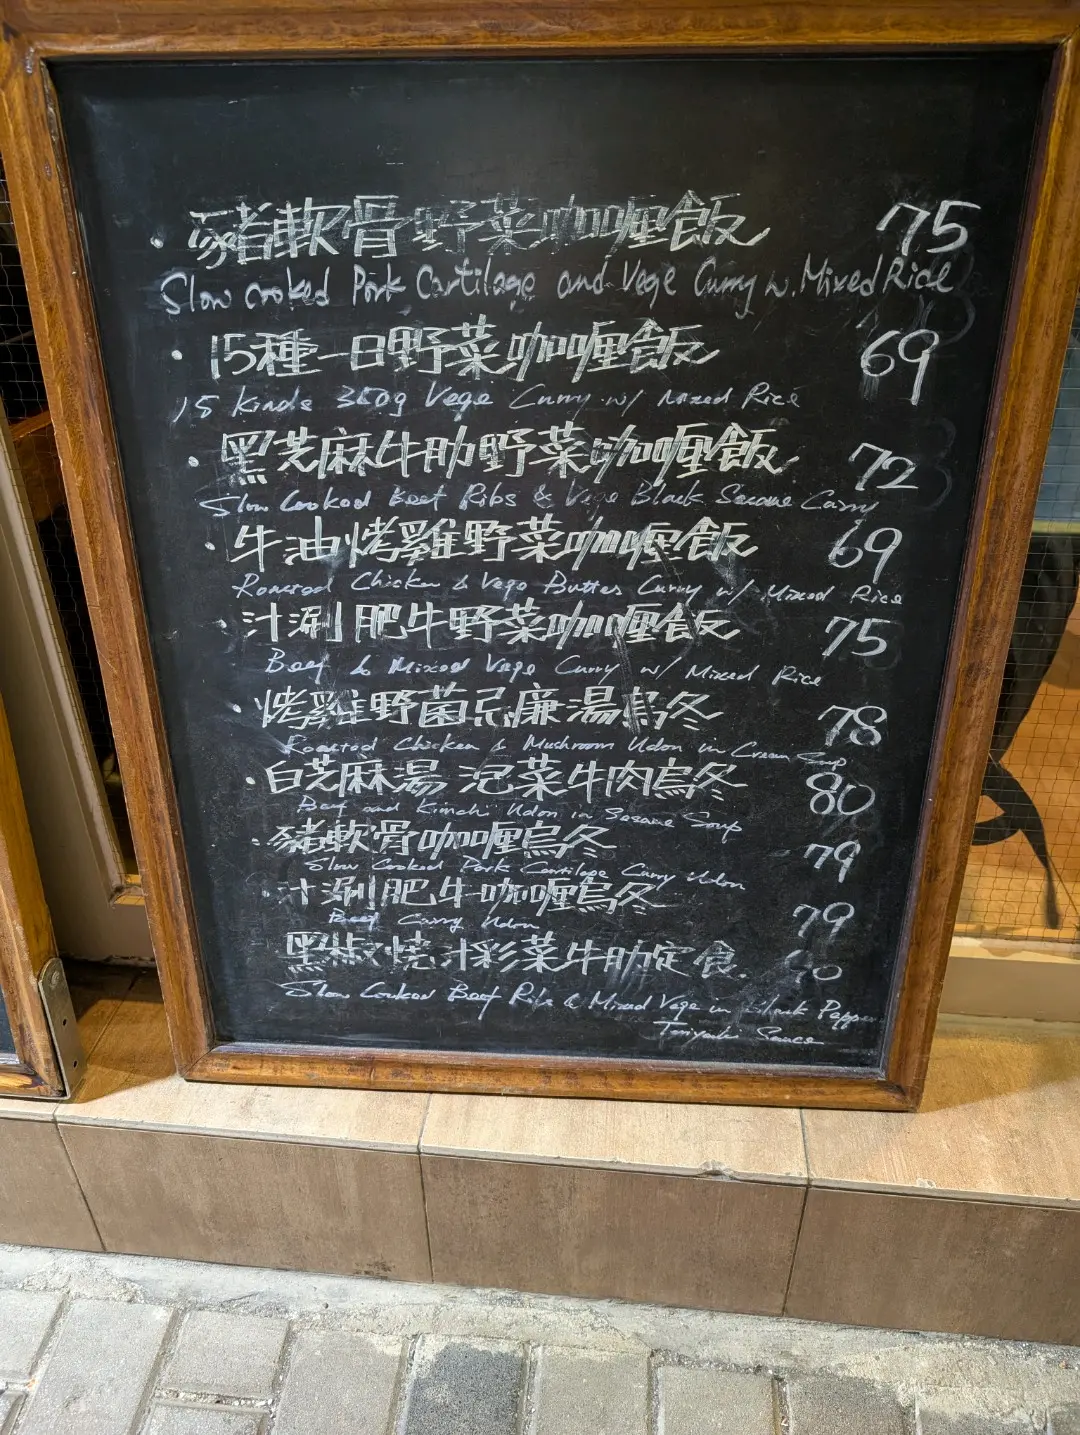 · 豬軟骨野菜咖喱飯 75
Slow cooked Pork Cartilage and Vege Curry w. Mixed Rice
· 15種一日野菜咖喱飯 69
15 Kinds 350g Vege Curry w/ Mixed Rice
· 黑芝麻牛肋野菜咖喱飯 72
Slow Cooked Beef Ribs & Vege Black Sesame Curry
· 牛油烤雞野菜咖喱飯 69
Roasted Chicken & Vege Butter Curry w/ Mixed Rice
· 汁涮肥牛野菜咖喱飯 75
Beef & Mixed Vege Curry w/ Mixed Rice
· 烤雞野菌忌廉湯烏冬 78
Roasted Chicken & Mushroom Udon in Cream Soup
· 白芝麻湯泡菜牛肉烏冬 80
Beef and Kimchi Udon in Sesame Soup
· 豬軟骨咖喱烏冬 79
Slow Cooked Pork Cartilage Curry Udon
· 汁涮肥牛咖喱烏冬 79
Beef Curry Udon
黑椒燒汁彩菜牛肋定食
Slow Cooked Beef Ribs & Mixed Vege in Black Pepper
Teriyaki Sauce